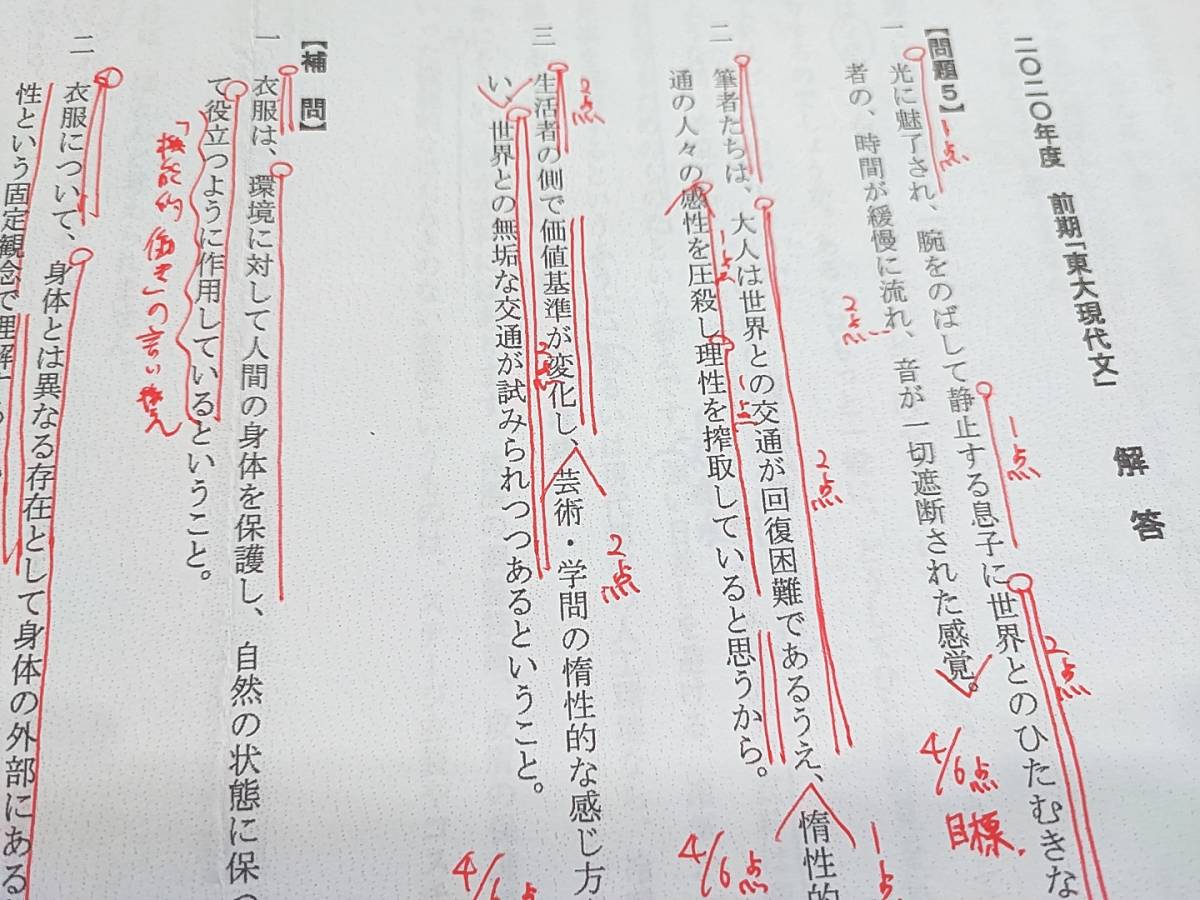 二〇二〇年度 前期「東大現代文」
解答
【問題5】
一 光に魅了され、腕をのばして静止する息子に世界とのひたむきな
者の、時間が緩慢に流れ、音が一切遮断された感覚。
1点
1点
2点
2点
4/6点
目標
二 筆者たちは、大人は世界との交通が回復困難であるうえ、惰性的
通の人々の感性を圧殺し理性を搾取していると思うから。
2点
1点
1点
1点
4/6点
三 生活者の側で価値基準が変化し、芸術・学問の惰性的な感じ方
い、世界との無垢な交通が試みられつつあるということ。
2点
2点
2点
4/6点
【補問】
一 衣服は、環境に対して人間の身体を保護し、自然の状態に保つ
て役立つように作用しているということ。
「機能的働き」の言い換え
二 衣服について、身体とは異なる存在として身体の外部にある
性という固定観念で理解